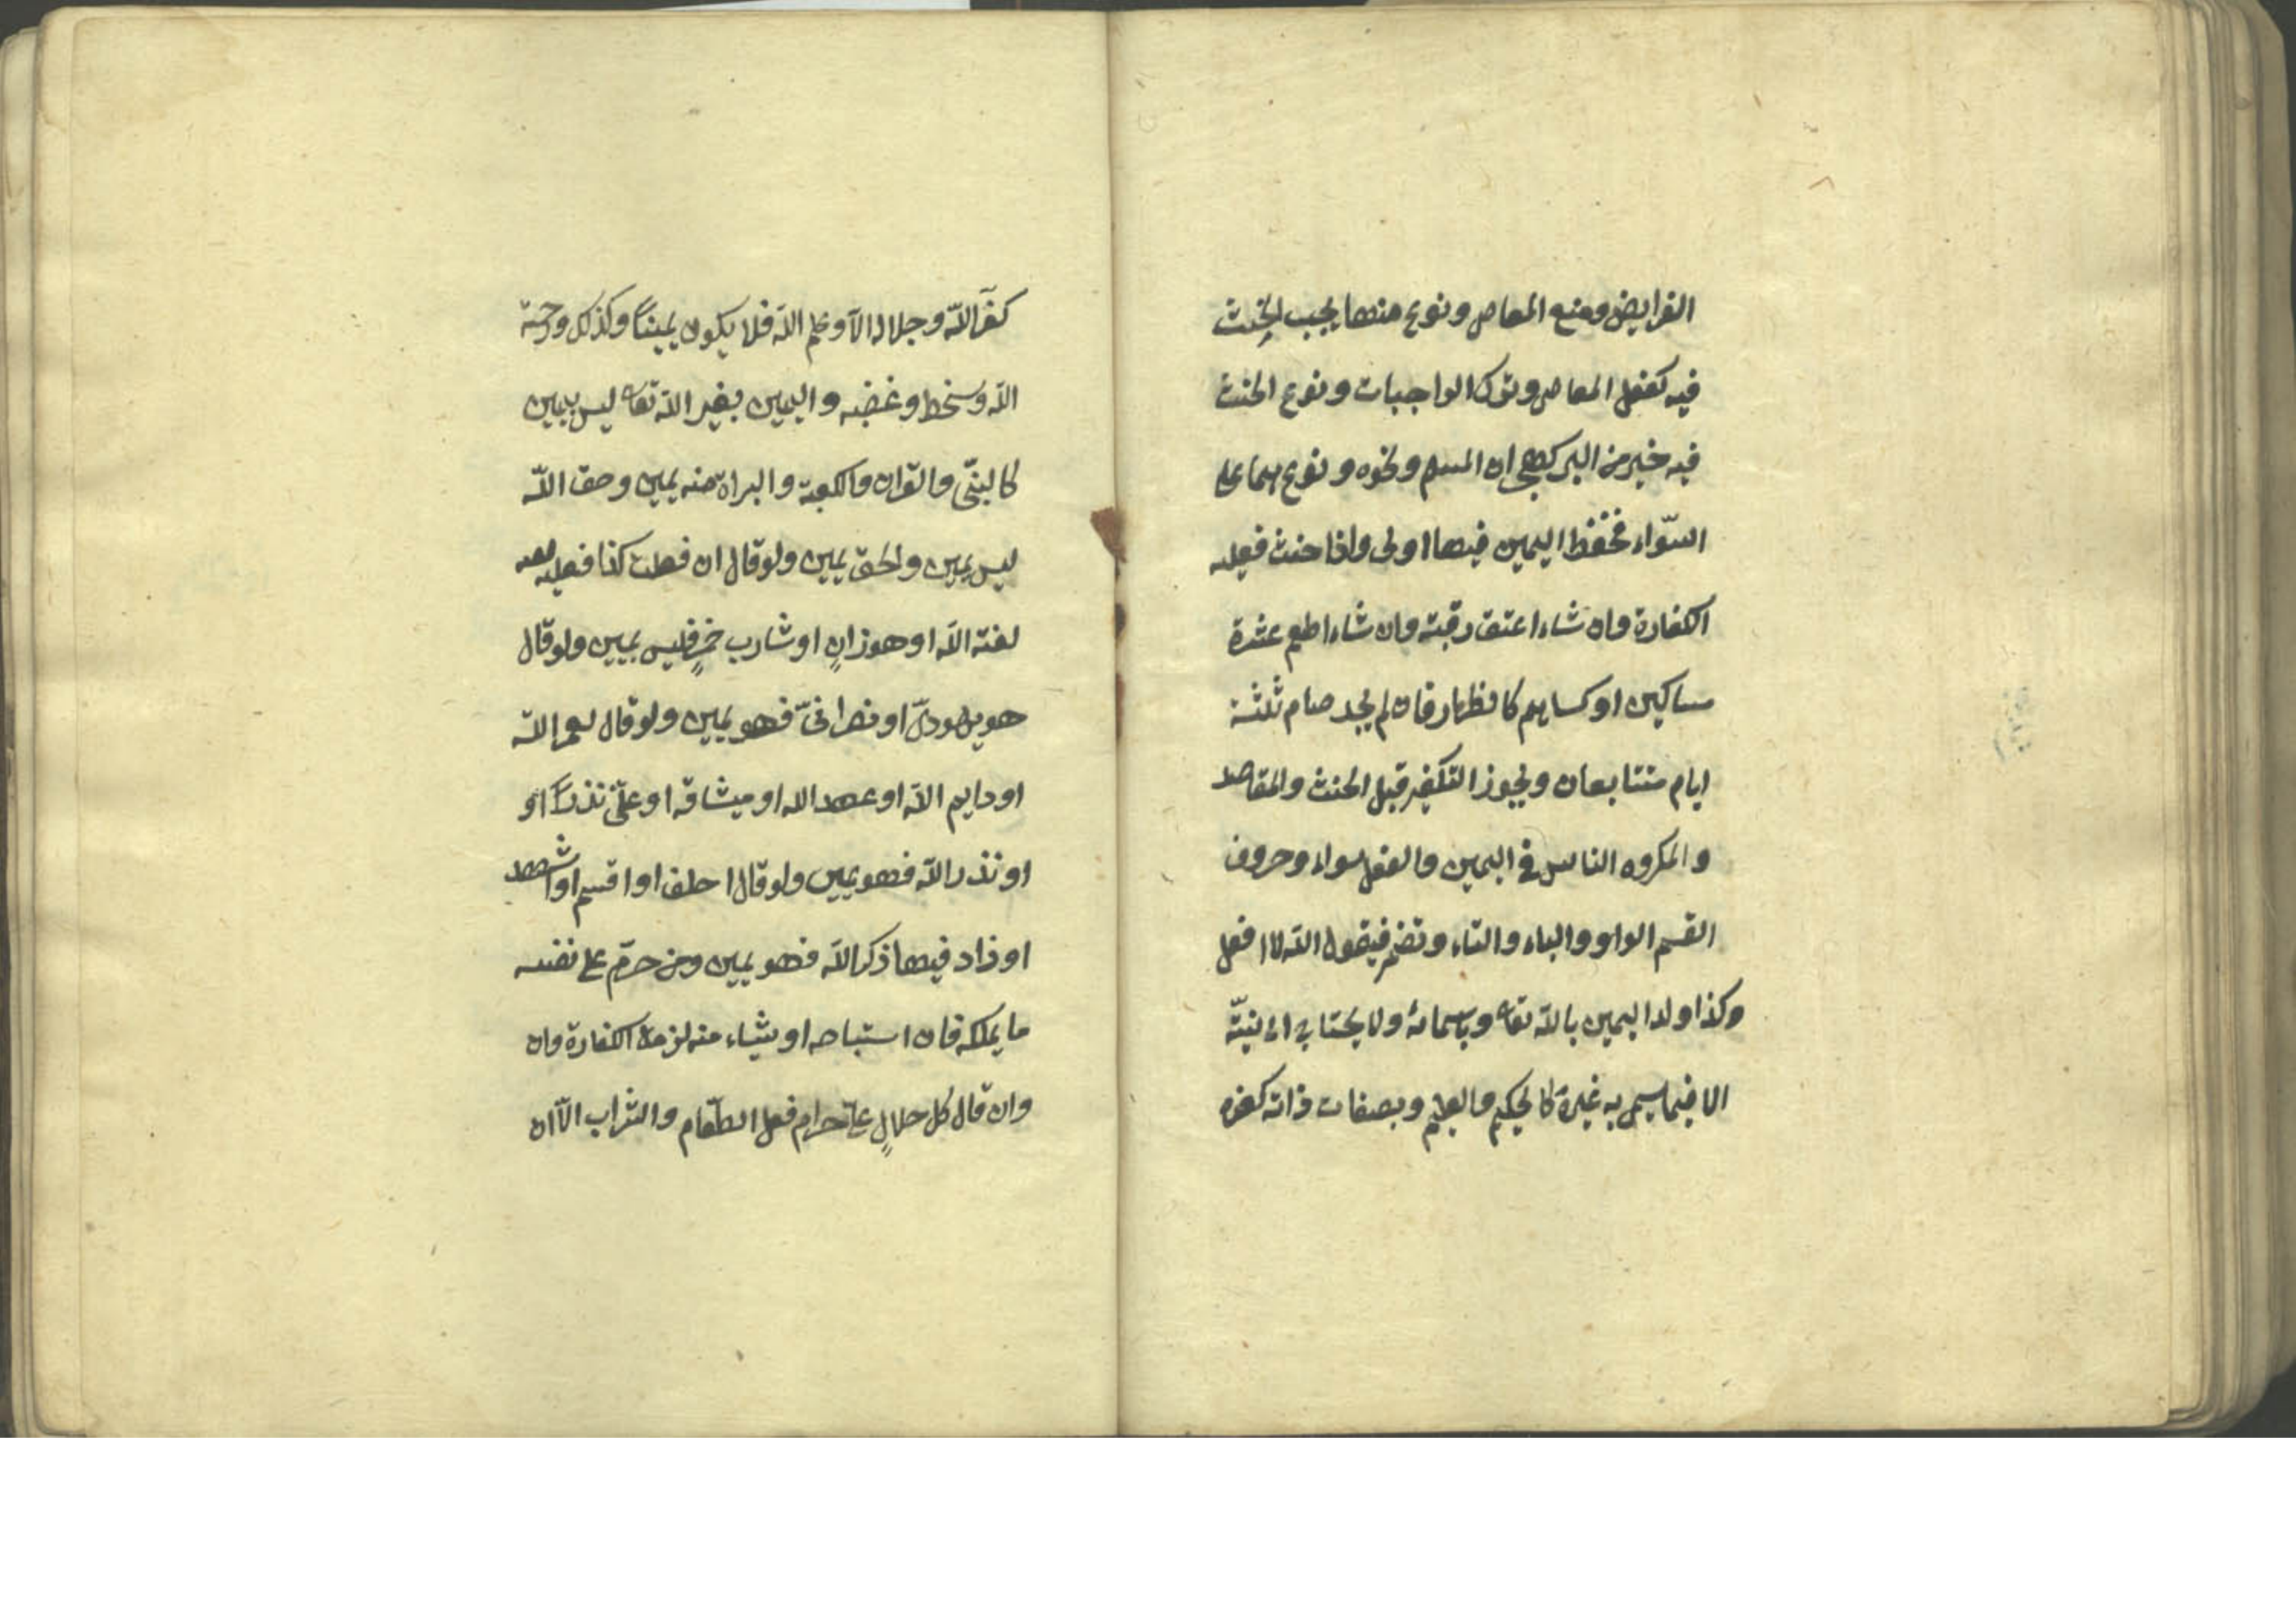 الفرايض ومنع المعاصى ونوع منها يجب الحِنث
فيه كفعل المعاصى وترك الواجبات ونوع الحنث
فيه خير من البر كهجران المسلم ونحوه ونوع هما على
السّواء فحفظ اليمين فيها اولى واذا حنث فعليه
الكفارة وان شاء اعتق رقبته وان شاء اطعم عشرة
مساكين او كساهم كالظهار فان لم يجد صام ثلثة
ايام متتابعات ويجوز التكفير قبل الحنث والقاصد
والمكروه الناس فى اليمين والفعل سواء وحروف
القسم الواو والباء والتاء وتضمر فيقول اللّه لا افعل
وكذا ولدا اليمين باللّه تعالى وباسمائه ولا يحتاج الى نيّته
الا فيما يسمى به غيره كالحكيم والعليم وبصفات ذاته كعزه
كعز اللّه وجلاله الاّ وعلم اللّه فلا يكون يميناً وكذلك ورحمة
اللّه وسخط وغضبه واليمين بغير اللّه تعالى ليس بيمين
كالنبّى والقران والكعبة والبراة منه يمين وحق اللّه
ليس يمين والحق يمين ولو قال ان فعلت كذا فعليه
لعنة اللّه او هو زانٍ او شارب خمرٍ فليس بيمين ولو قال
هو يهودىّ او نصرانىّ فهو يمين ولو قال لعمر اللّه
او وايم اللّه او عهد الله او ميثاقه او علىّ نذر او
او نذر اللّه فهو يمين ولو قال احلف او اقسم او اشهد
او زاد فيها ذكر اللّه فهو يمين ومن حرّم على نفسه
ما يملكه فان استباحه او شياء منه لزمته الكفارة وان
وان قال كل حلالٍ علىّ حرام فعلى الطّعام والشراب الاّ ان